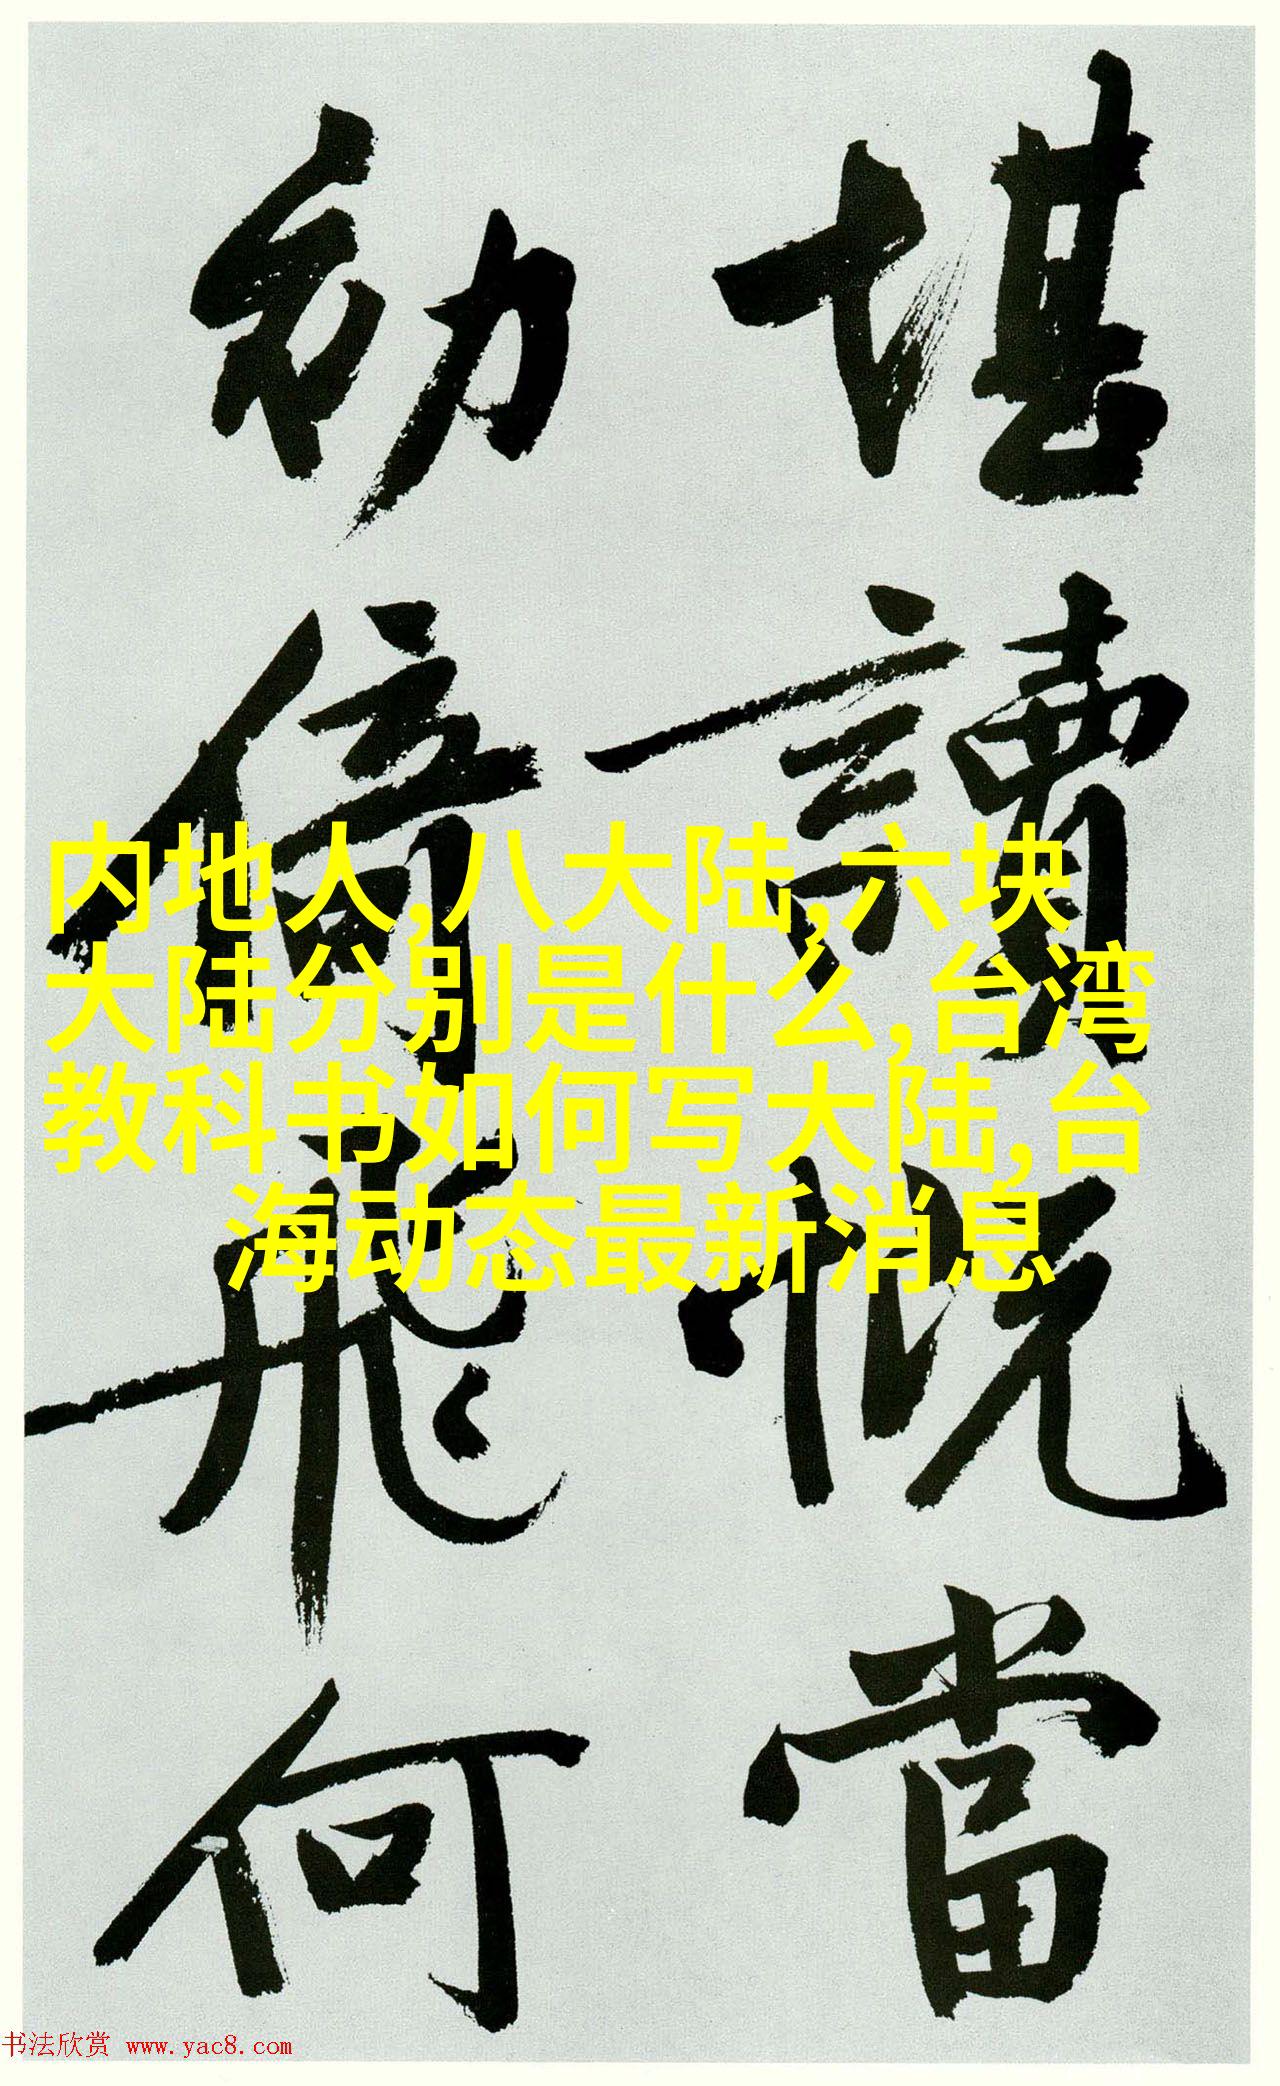 堪讀慨當
初倚飛何
内地人,八大陆,六块
大陆分别是什么,台湾
教科书如何写大陆,台
海动态最新消息
书法欣赏 www.yac8.com